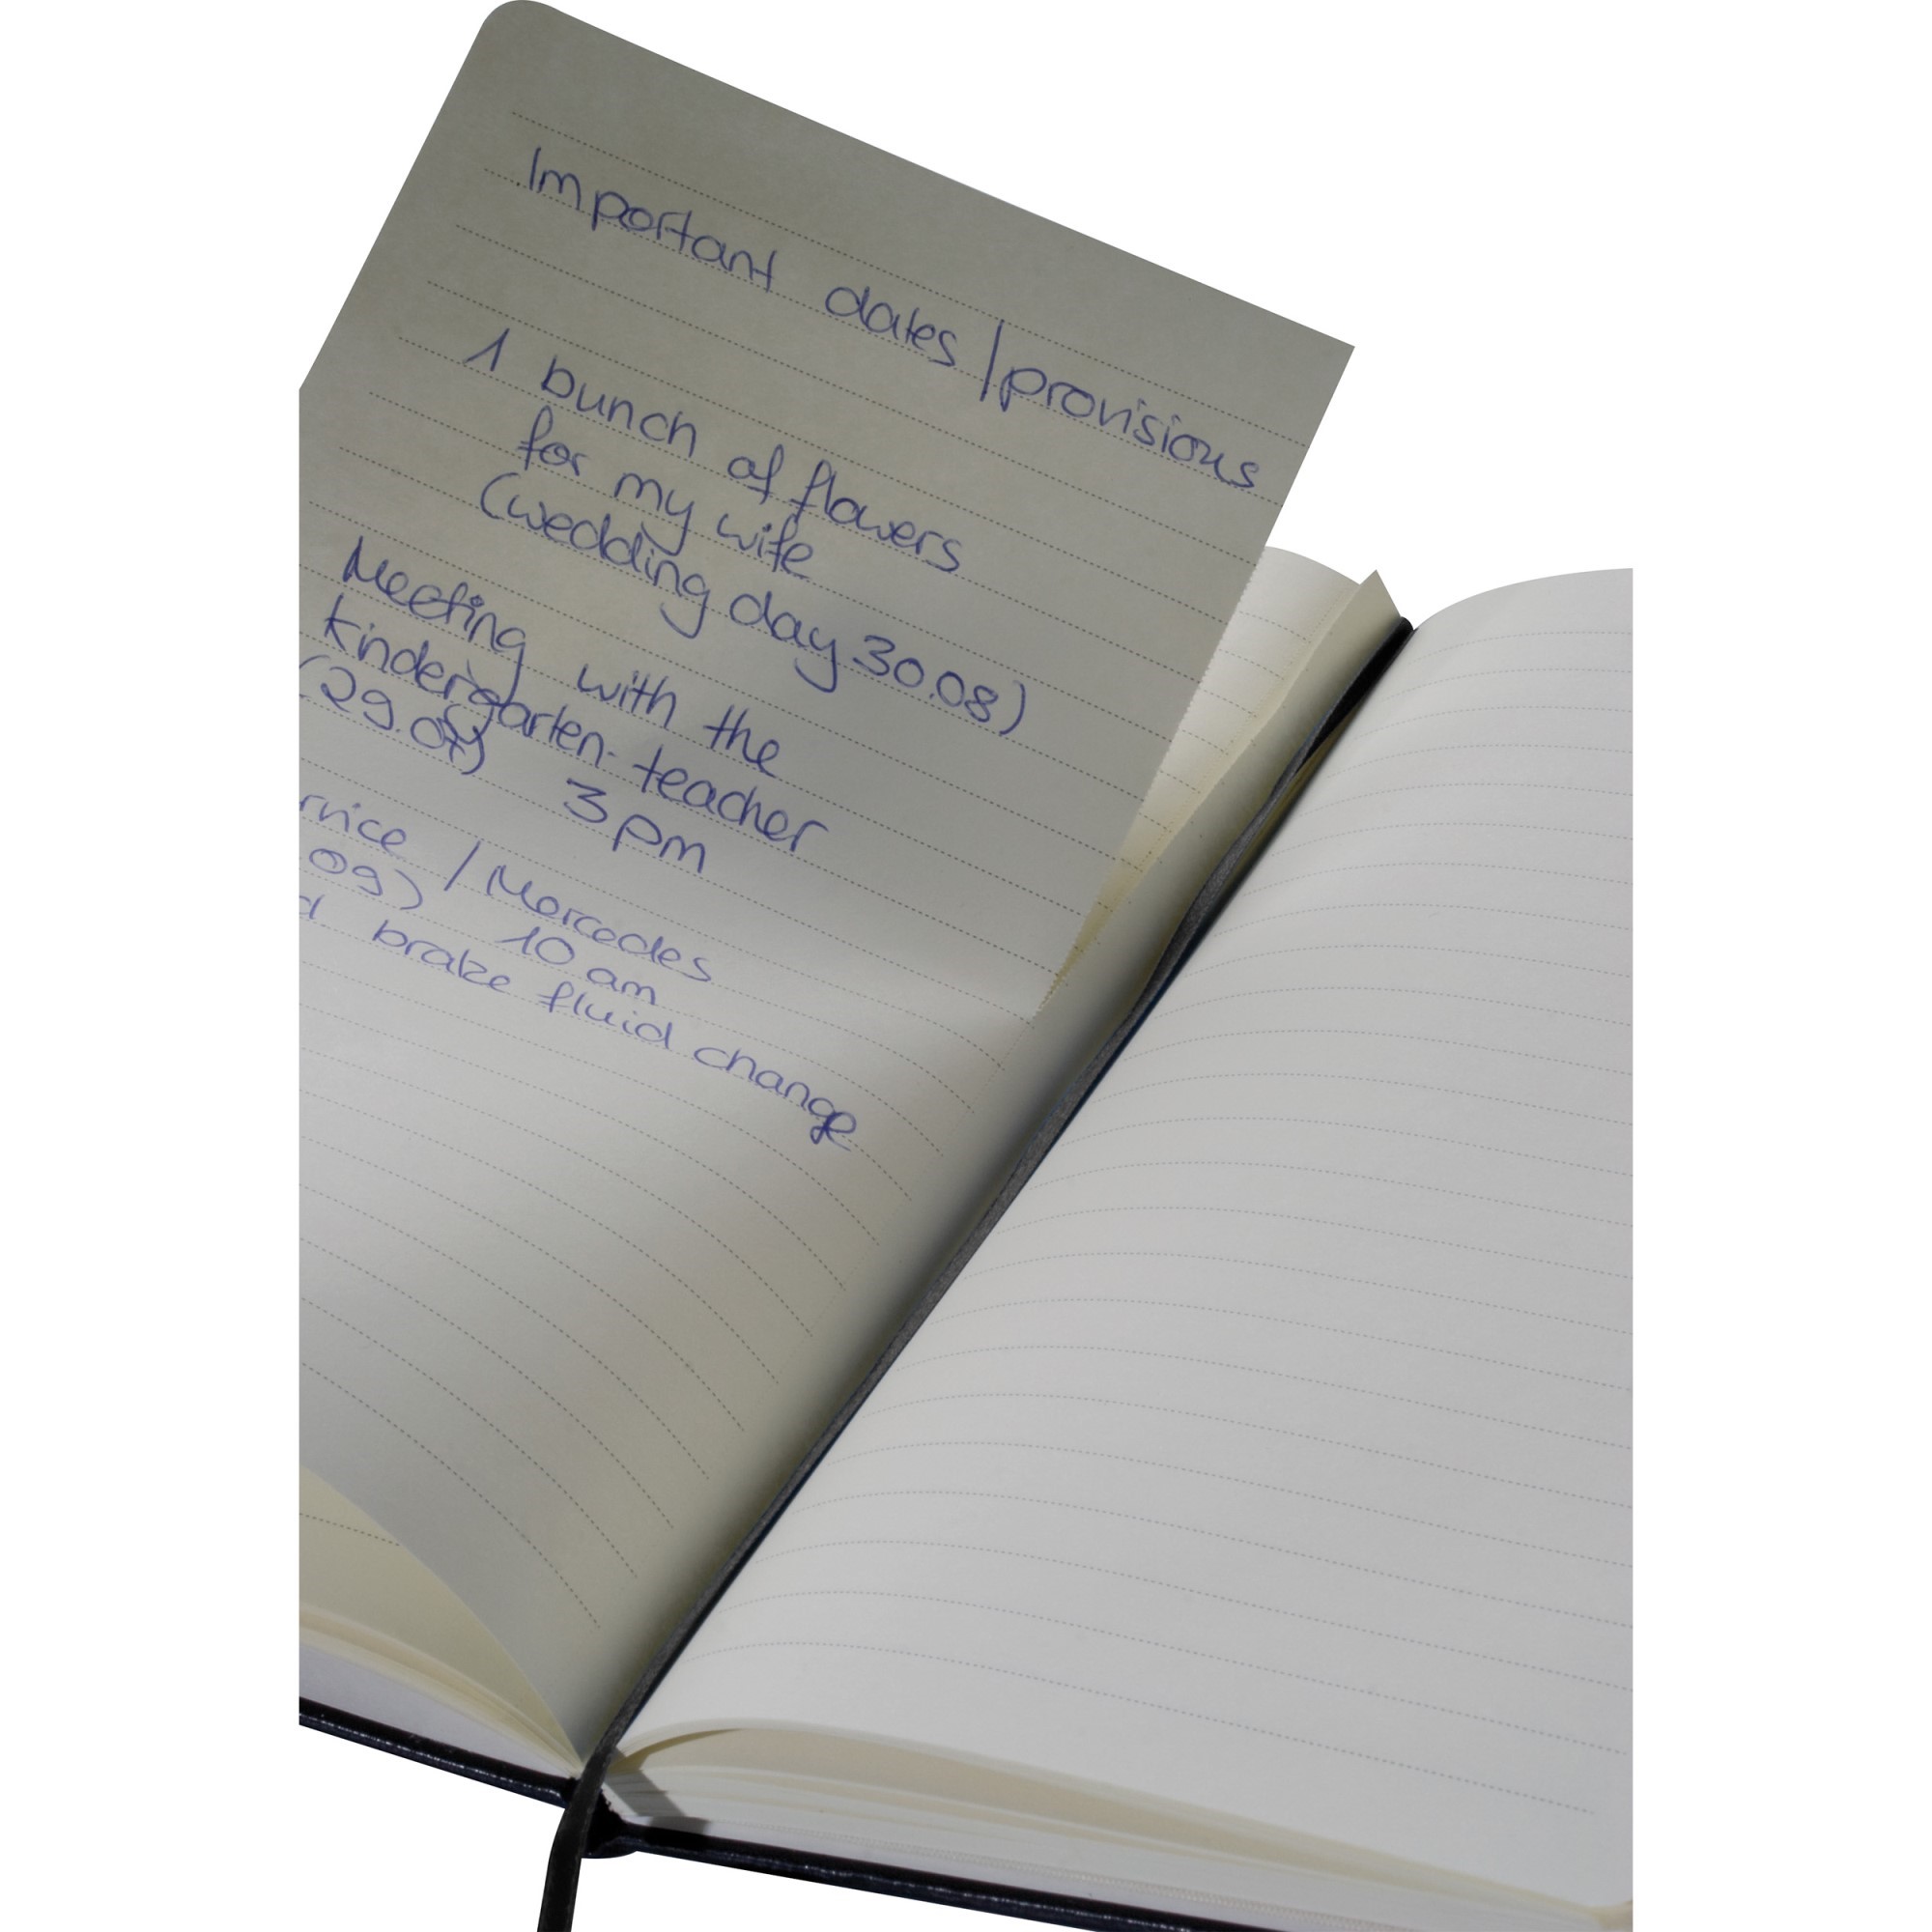 Important dates / provisions
1 bunch of flowers
for my wife
(wedding day 30.08)
Meeting with the
kindergarten-teacher
(29.07) 3 pm
rvice / Mercedes
09) 10 am
brake fluid change